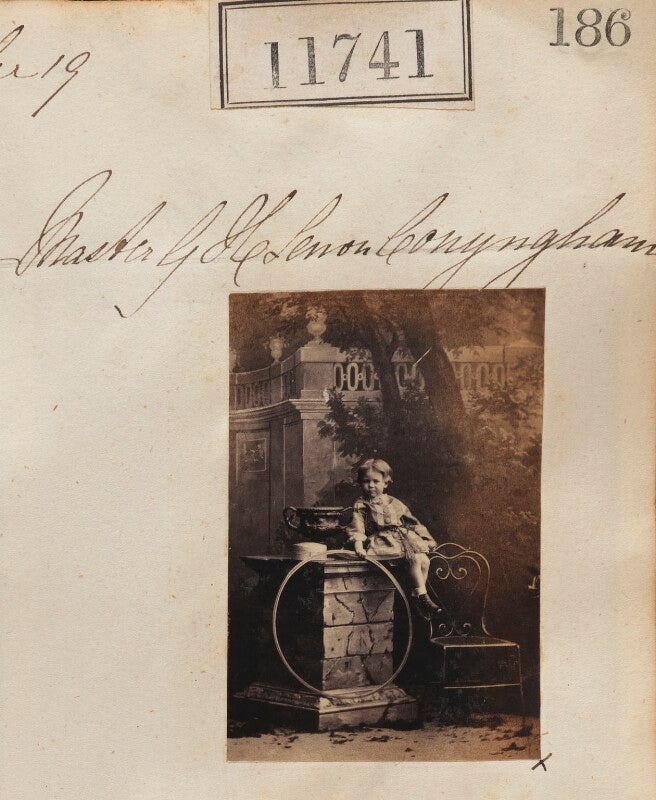 186
11741
19
Master G H Lenox Conyngham
x